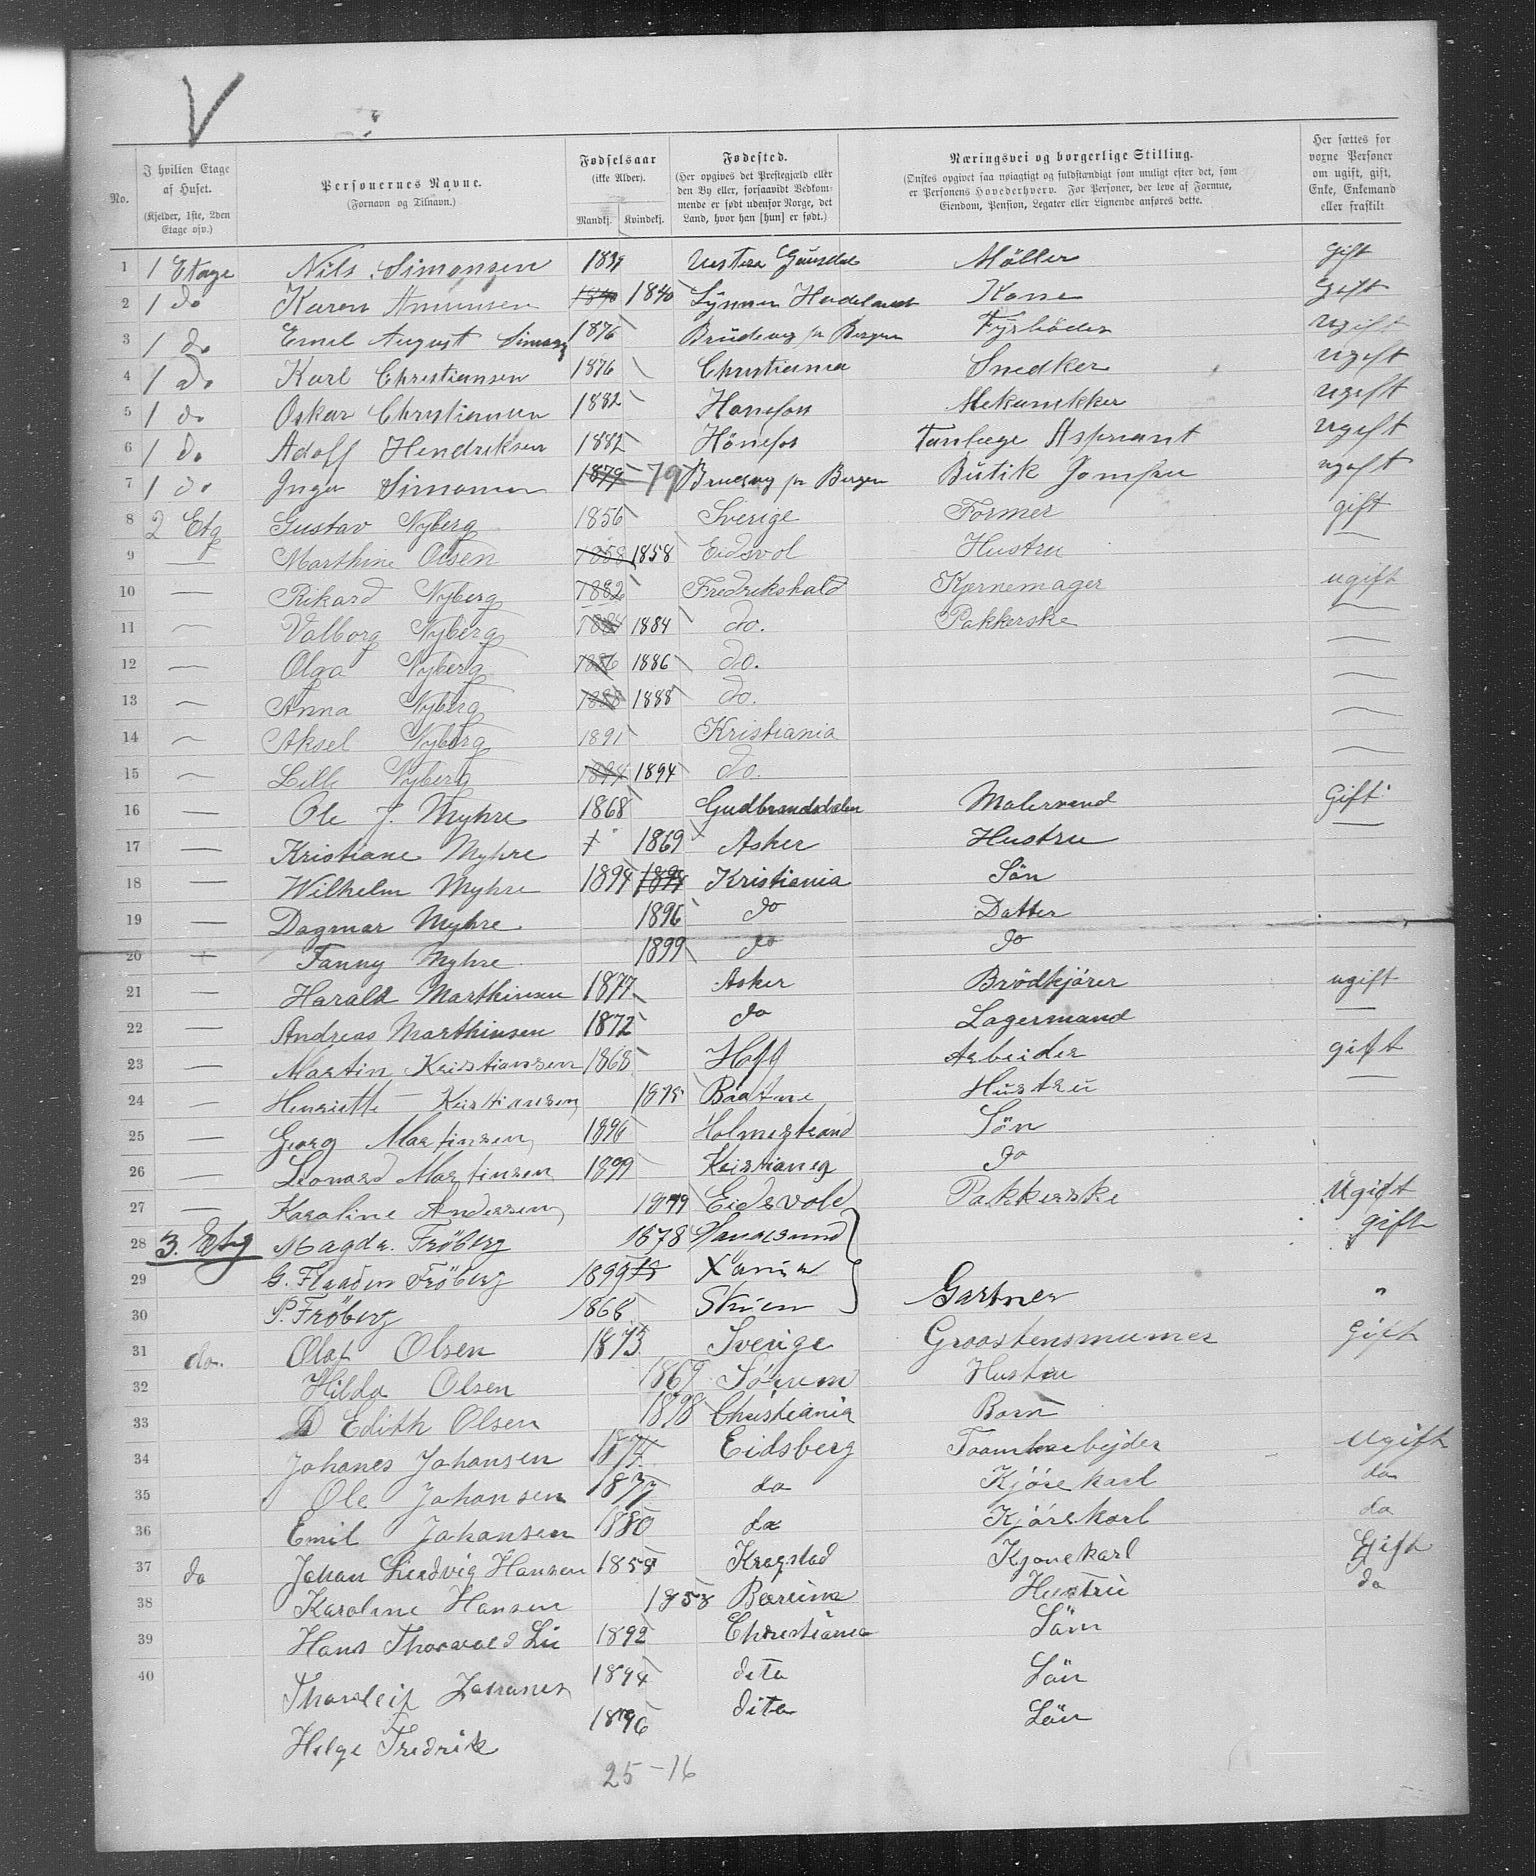 V
No.
I hvilken Etage af Huset. (Kjelder, 1ste, 2den Etage osv.)
Personernes Navne. (Fornavn og Tilnavn.)
Fødselsaar (ikke Alder). Mandkj. Kvindekj.
Fødested. (Her opgives det Prestegjæld eller den By eller, forsaavidt Vedkommende er født udenfor Norge, det Land, hvor han [hun] er født.)
Næringsvei og borgerlige Stilling. (Ønskes opgivet saa nøiagtigt og fuldstændigt som muligt efter det, som er Personens Hovederhverv. For Personer, der leve af Formue, Eiendom, Pension, Legater eller Lignende anføres dette.
Her sættes for voxne Personer om ugift, gift, Enke, Enkemand eller fraskilt
1 1 Etage Nils Simonsen 1839 Vestera Gausdal Möller gift
2 1 do Karen Amunsen 1840 1840 Hadeland Kone Gift
3 1 do Emil August 1876 pr Bergen Fyrböder ugift
4 1 do Karl Christiansen 1876 Christiania Snedker ugift
5 1 do Oskar Christiansen 1882 Honefoss Mekanikker ugift
6 1 do Adolf Hendriksen 1882 Hönefos Tanlæge Aspirant ugift
7 1 do Inga Simonsen 1879 79 pr Bergen Butik Jomfru ugift
8 2 Etg Gustav Nyberg 1856 Sverige Former gift
9 — Marthine Olsen 1858 1858 Eidsvol Hustru —
10 — Rikard Nyberg 1882 Fredrikshald Kjernemager ugift
11 — Valborg Nyberg 1884 1884 do. Pakkerske —
12 — Olga Nyberg 1886 1886 do. —
13 — Anna Nyberg 1888 1888 do. —
14 — Aksel Nyberg 1891 Kristiania —
15 — Lilli Nyberg 1894 1894 do. —
16 — Ole J. Myhre 1868 Gudbrandsdalen Malersvend Gift
17 — Kristiane Myhre + 1869 Asker Hustru —
18 — Wilhelm Myhre 1894 1894 Kristiania Sön
19 — Dagmar Myhre 1896 do Datter
20 — Fanny Myhre 1899 do do
21 — Harald Marthinsen 1877 Asker Brödkjörer ugift
22 — Andreas Marthinsen 1872 do Lagermand —
23 — Martin Kristiansen 1868 Hoff Arbeider gift
24 — Henriette Kristiansen 1875 Botne Hustru —
25 — Georg Martinsen 1896 Holmestrand Sön
26 — Leonard Martinsen 1899 Kristiania do
27 — Karoline Andersen 1879 Eidsvold Pakkerske Ugift
28 3. Etg Magda Fröberg 1878 gift
29 G. Fröberg 1899 Xania
30 P. Fröberg 1868 Skien Gartner "
31 do. Olaf Olsen 1873 Sverige Graastensmurer Gift
32 Hilda Olsen 1869 Sörum Hustru
33 Edith Olsen 1898 Christiania Barn
34 Johanes Johansen 1874 Eidsberg Tomtearbejder Ugift
35 Ole Johansen 1877 do Kjörekarl do
36 Emil Johansen 1880 do Kjörekarl do
37 do Johan Ludvig Hansen 1858 Kragstad Kjörekarl Gift
38 Karoline Hansen 1858 Bærum Hustru do
39 Hans Thorvald 1892 Christiania Sön
40 Thorleif Johanes 1894 dito Sön
Helge Fredrik 1896 dito Sön
25 – 16